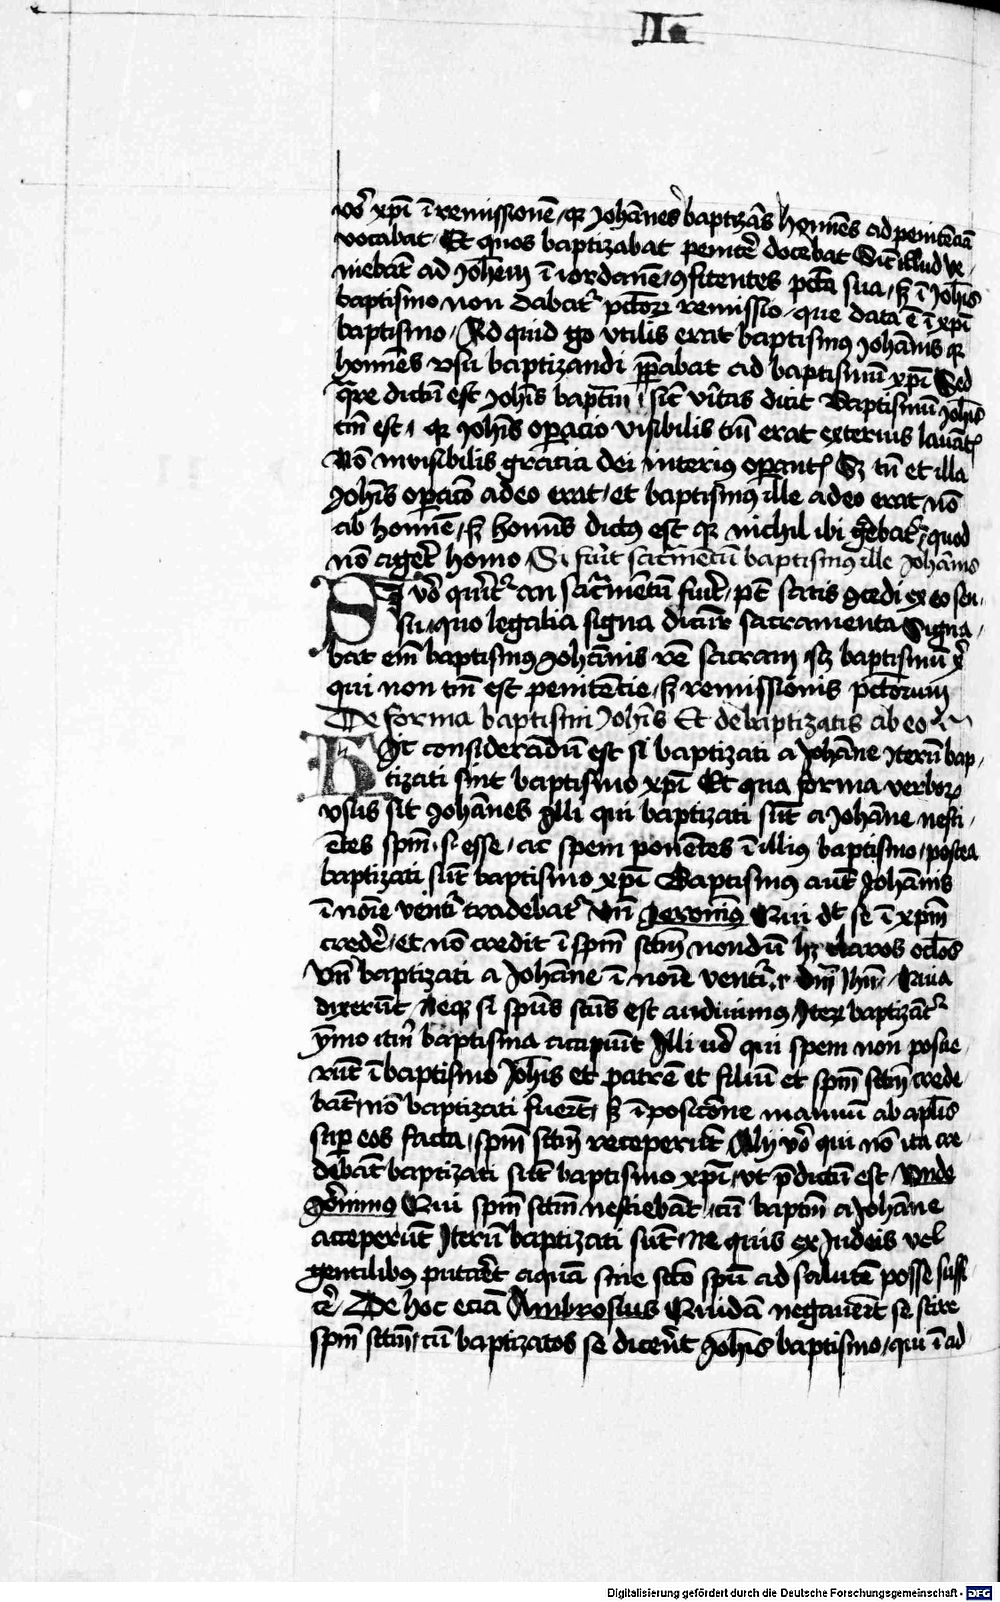 IIa
vo᷒ xp̄i ī remissionē / qꝫ Johānes baptizās homīes ad penitēciā
vocabat / Et quos baptizabat peniter̄ docebat Sic̄ illud ve-
niebāt ad Joh̄em ī iordanē / ꝯfitentes pctā sua / sꝫ ī Joh̄is
baptismo non dabat᷒ pctoꝝ remissio / que data ē ī xp̄i
baptismo / Ad quid gͦ vtilis erat baptismꝰ Johānis qꝫ
homīes vsu baptizandi p̄parabat ad baptismū xp̄i Sed
q̄re dictū est Joh̄is baptm̄ / sic̄ vītas dicit Baptismū Joh̄is
tm̄ est / qꝫ Joh̄is oꝑacio visibilis tm̄ erat exterius lauātꝭ
Nō invisibilis gracia dei interiꝰ oꝑantꝭ Sꝫ tn̄ et illa
Joh̄is oꝑacō a deo erat / et baptismꝰ ille a deo erat nō
ab homīe / sꝫ homīs dictꝰ est qꝫ nichil ibi gerebat᷒ / quod
nō ageret̄ homo / Si fuit sacͣmētū baptismꝰ ille Johānis
Si vo᷒ querit᷒ an sacͣmētū fuit̄ / pt̄ satis ꝯcedi ex eo sen-
su / quo legalia signa dicūr sacramenta Signa-
bat em̄ baptismꝰ Johānis rē sacram / sꝫ baptismū x̄
qui non tm̄ est penitēcie / sꝫ remissionis pctorum
De forma baptismi Joh̄is Et de baptizatis ab eo
Hic considerādū est si baptizati a Johāne Iterū bap-
tizati sint baptismo xp̄i Et qua forma verboꝝ
vsus sit Johānes Illi qui baptizati sūt a Johāne nesci-
ētes spm̄ s esse / ac spem ponētes ī illiꝰ baptismo / postea
baptizati sūt baptismo xp̄i Baptismꝰ aut̄ Johānis
ī noīe vent᷒i tradebat᷒ Vn̄ Jeronimꝰ Qui dt̄ se ī xp̄m
creder̄ / et nō credit ī spm̄ sctm̄ nondū hꝫ claros oclōs
Vn̄ baptizati a Johāne ī noīe vent᷒i dm̄ Jhm̄ / Quia
dixerūt / Neqꝫ si spūs scūs est audiuimꝰ / Iteꝝ baptizāt᷒
ymo itm̄ baptisma accipiūt Illi vo᷒ qui spem non posue-
rūt ī baptismo Joh̄is et patrē et filiū et spm̄ sctm̄ crede-
bāt nō baptizati fuerūt / sꝫ īposicōne manuū ab aplīs
suꝑ eos facta / spm̄ sctm̄ receperūt Alij vo᷒ qui nō ita cre-
debāt baptizati sūt baptismo xp̄i / vt p̄dictū est / Vnde
Jeronimus Qui spm̄ sctm̄ nesciebāt / cū baptm̄ a Johāne
acceperūt Iterū baptizati sūt / ne quis ex Judeis vel
gentilibꝰ putaret̄ aquā sine sctō spū ad salutē posse suffi-
cer̄ De hoc eciā Ambrosius Quidā negauerūt se scire
spm̄ sctm̄ / cū baptizatos se dicerēt Joh̄is baptismo / qui ī ad
Digitalisierung gefördert durch die Deutsche Forschungsgemeinschaft - DFG